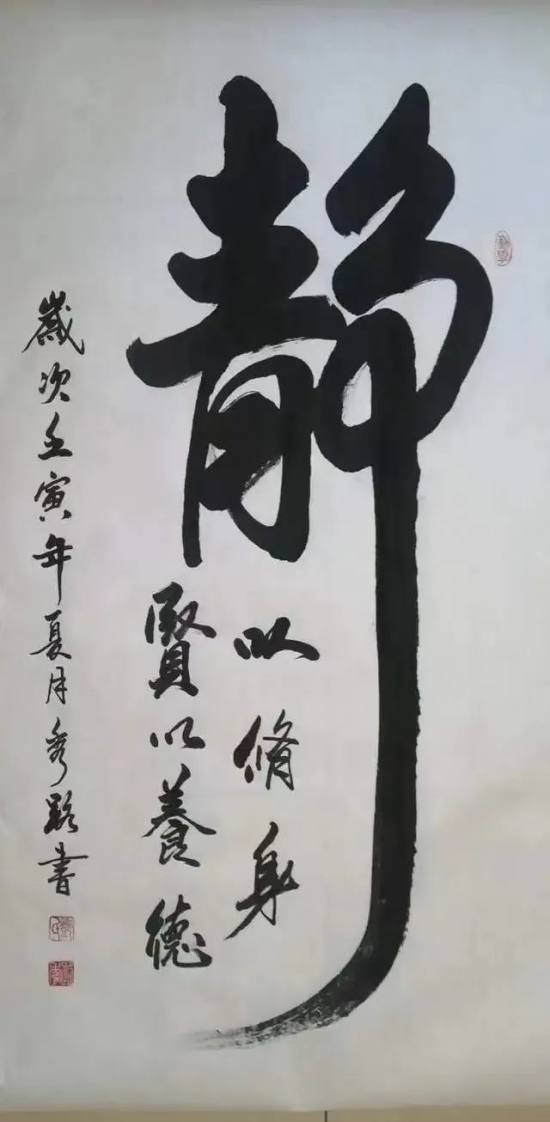 靜
以脩身
賢以養德
歲次壬寅年夏月秀路書